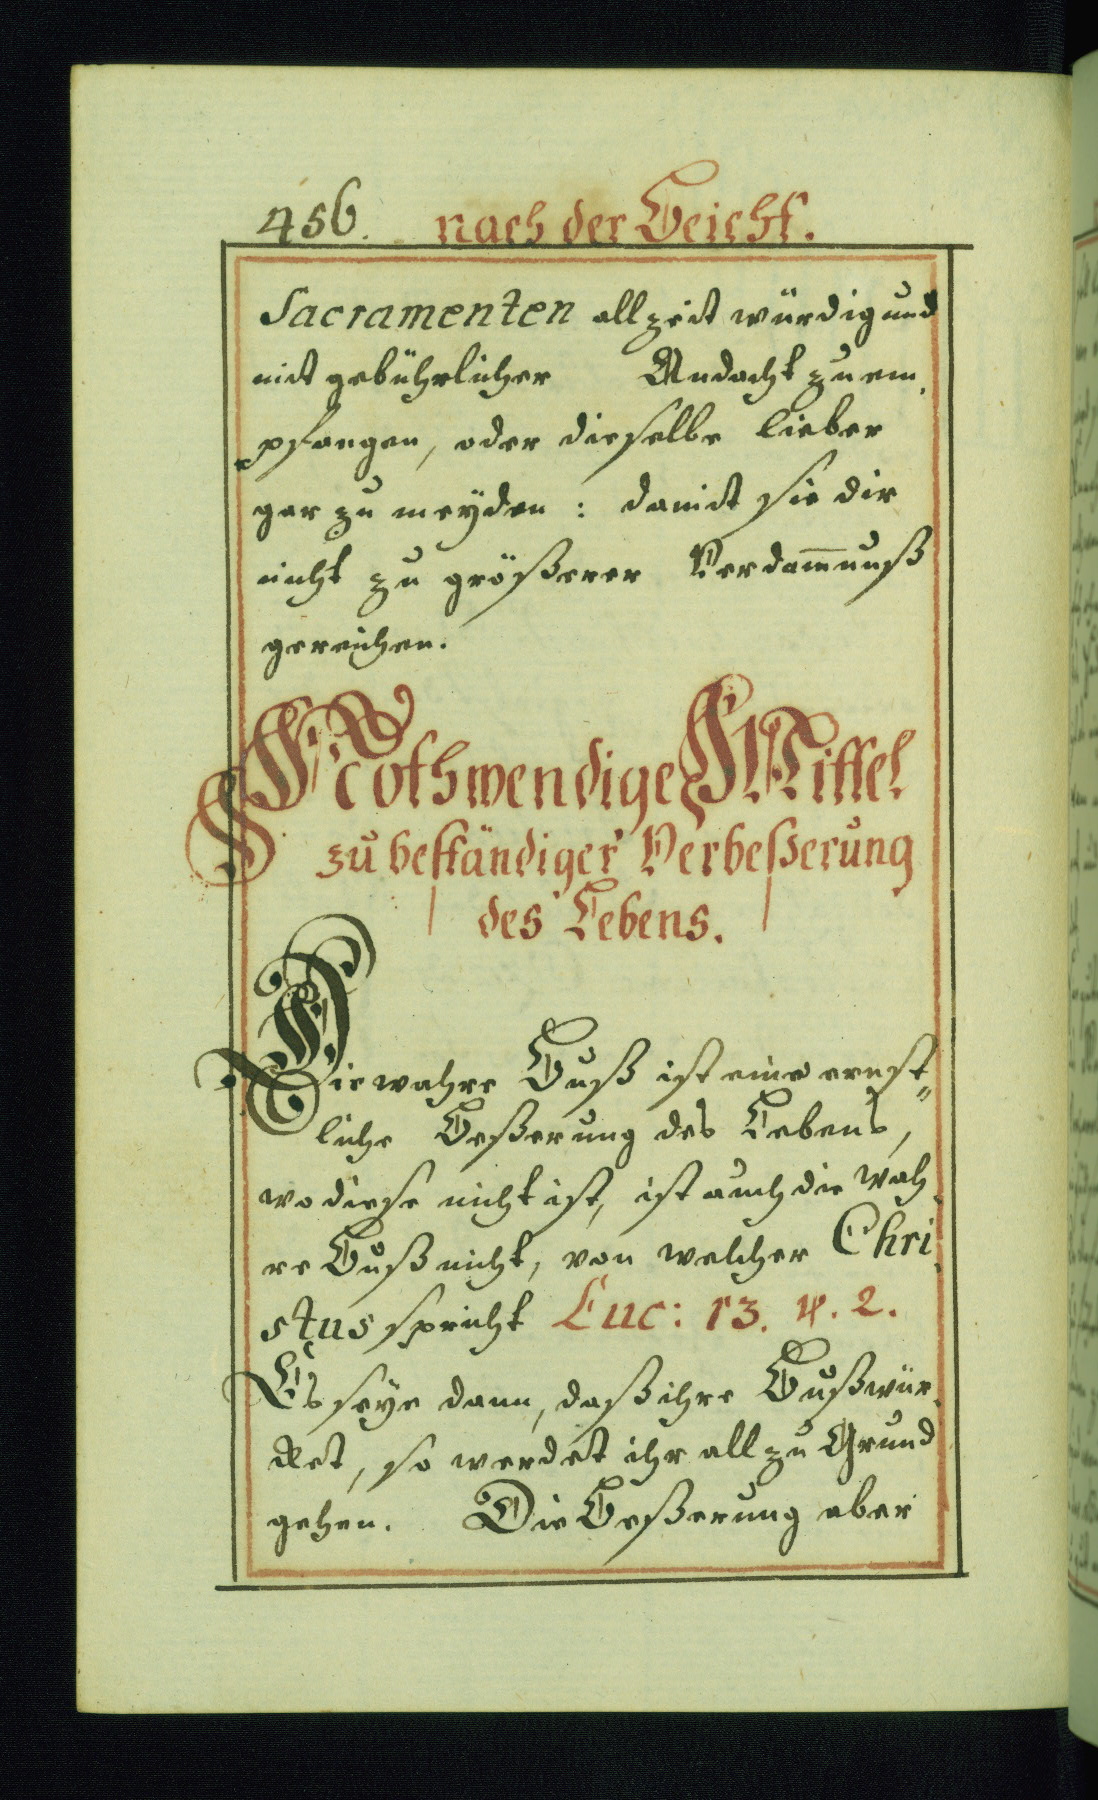 456. nach der Beicht.
Sacramenten allzeit würdig und
mit gebührlicher Andacht zu em-
pfangen, oder dieselbe lieber
gar zu meÿden: damit sie dir
nicht zu größerer Verdam̅nuß
gereichen.
Nothwendige Mittel
zu beständiger Verbeßerung
des Lebens.
Die wahre Buß ist eine ernst-
liche Beßerung des Lebens,
wo diese nicht ist, ist auch die wah-
re Buß nicht, von welcher Chri-
stus spricht Luc: 13. V. 2.
Es seÿe dann, daß ihre Buß wür-
cket, so werdet ihr all zu Grund
gehen. Die Beßerung aber